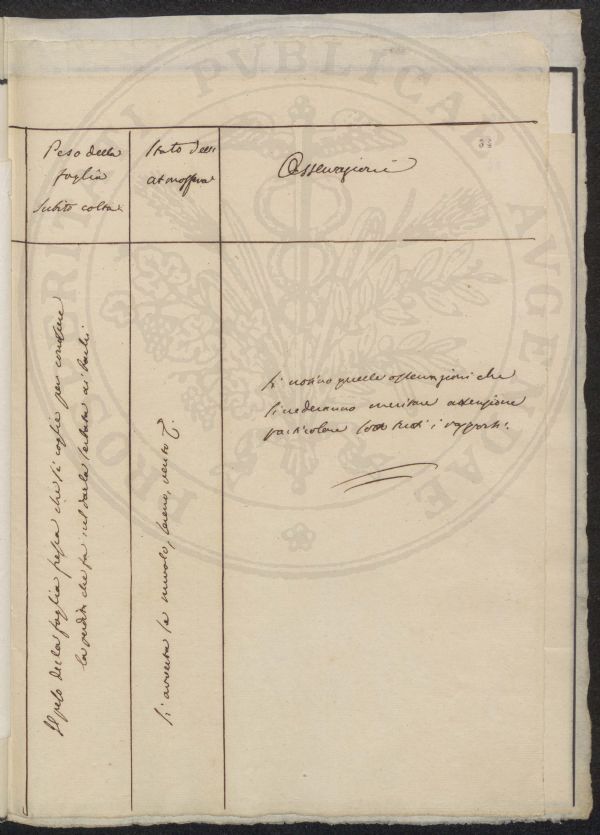 Peso della
foglia
subito colta
Stato dell'
atmosfera
Osservazioni
32
Il peso della foglia fresca che si coglie per conoscere
la perdita che fa nel darla ai bachi
Si avverta se nuvolo, sereno, vento
Si notino quelle osservazioni che
si vederanno meritare attenzione
particolare sotto tutti i rapporti.
PROSPERITATI PVBLICAE AVGENDAE